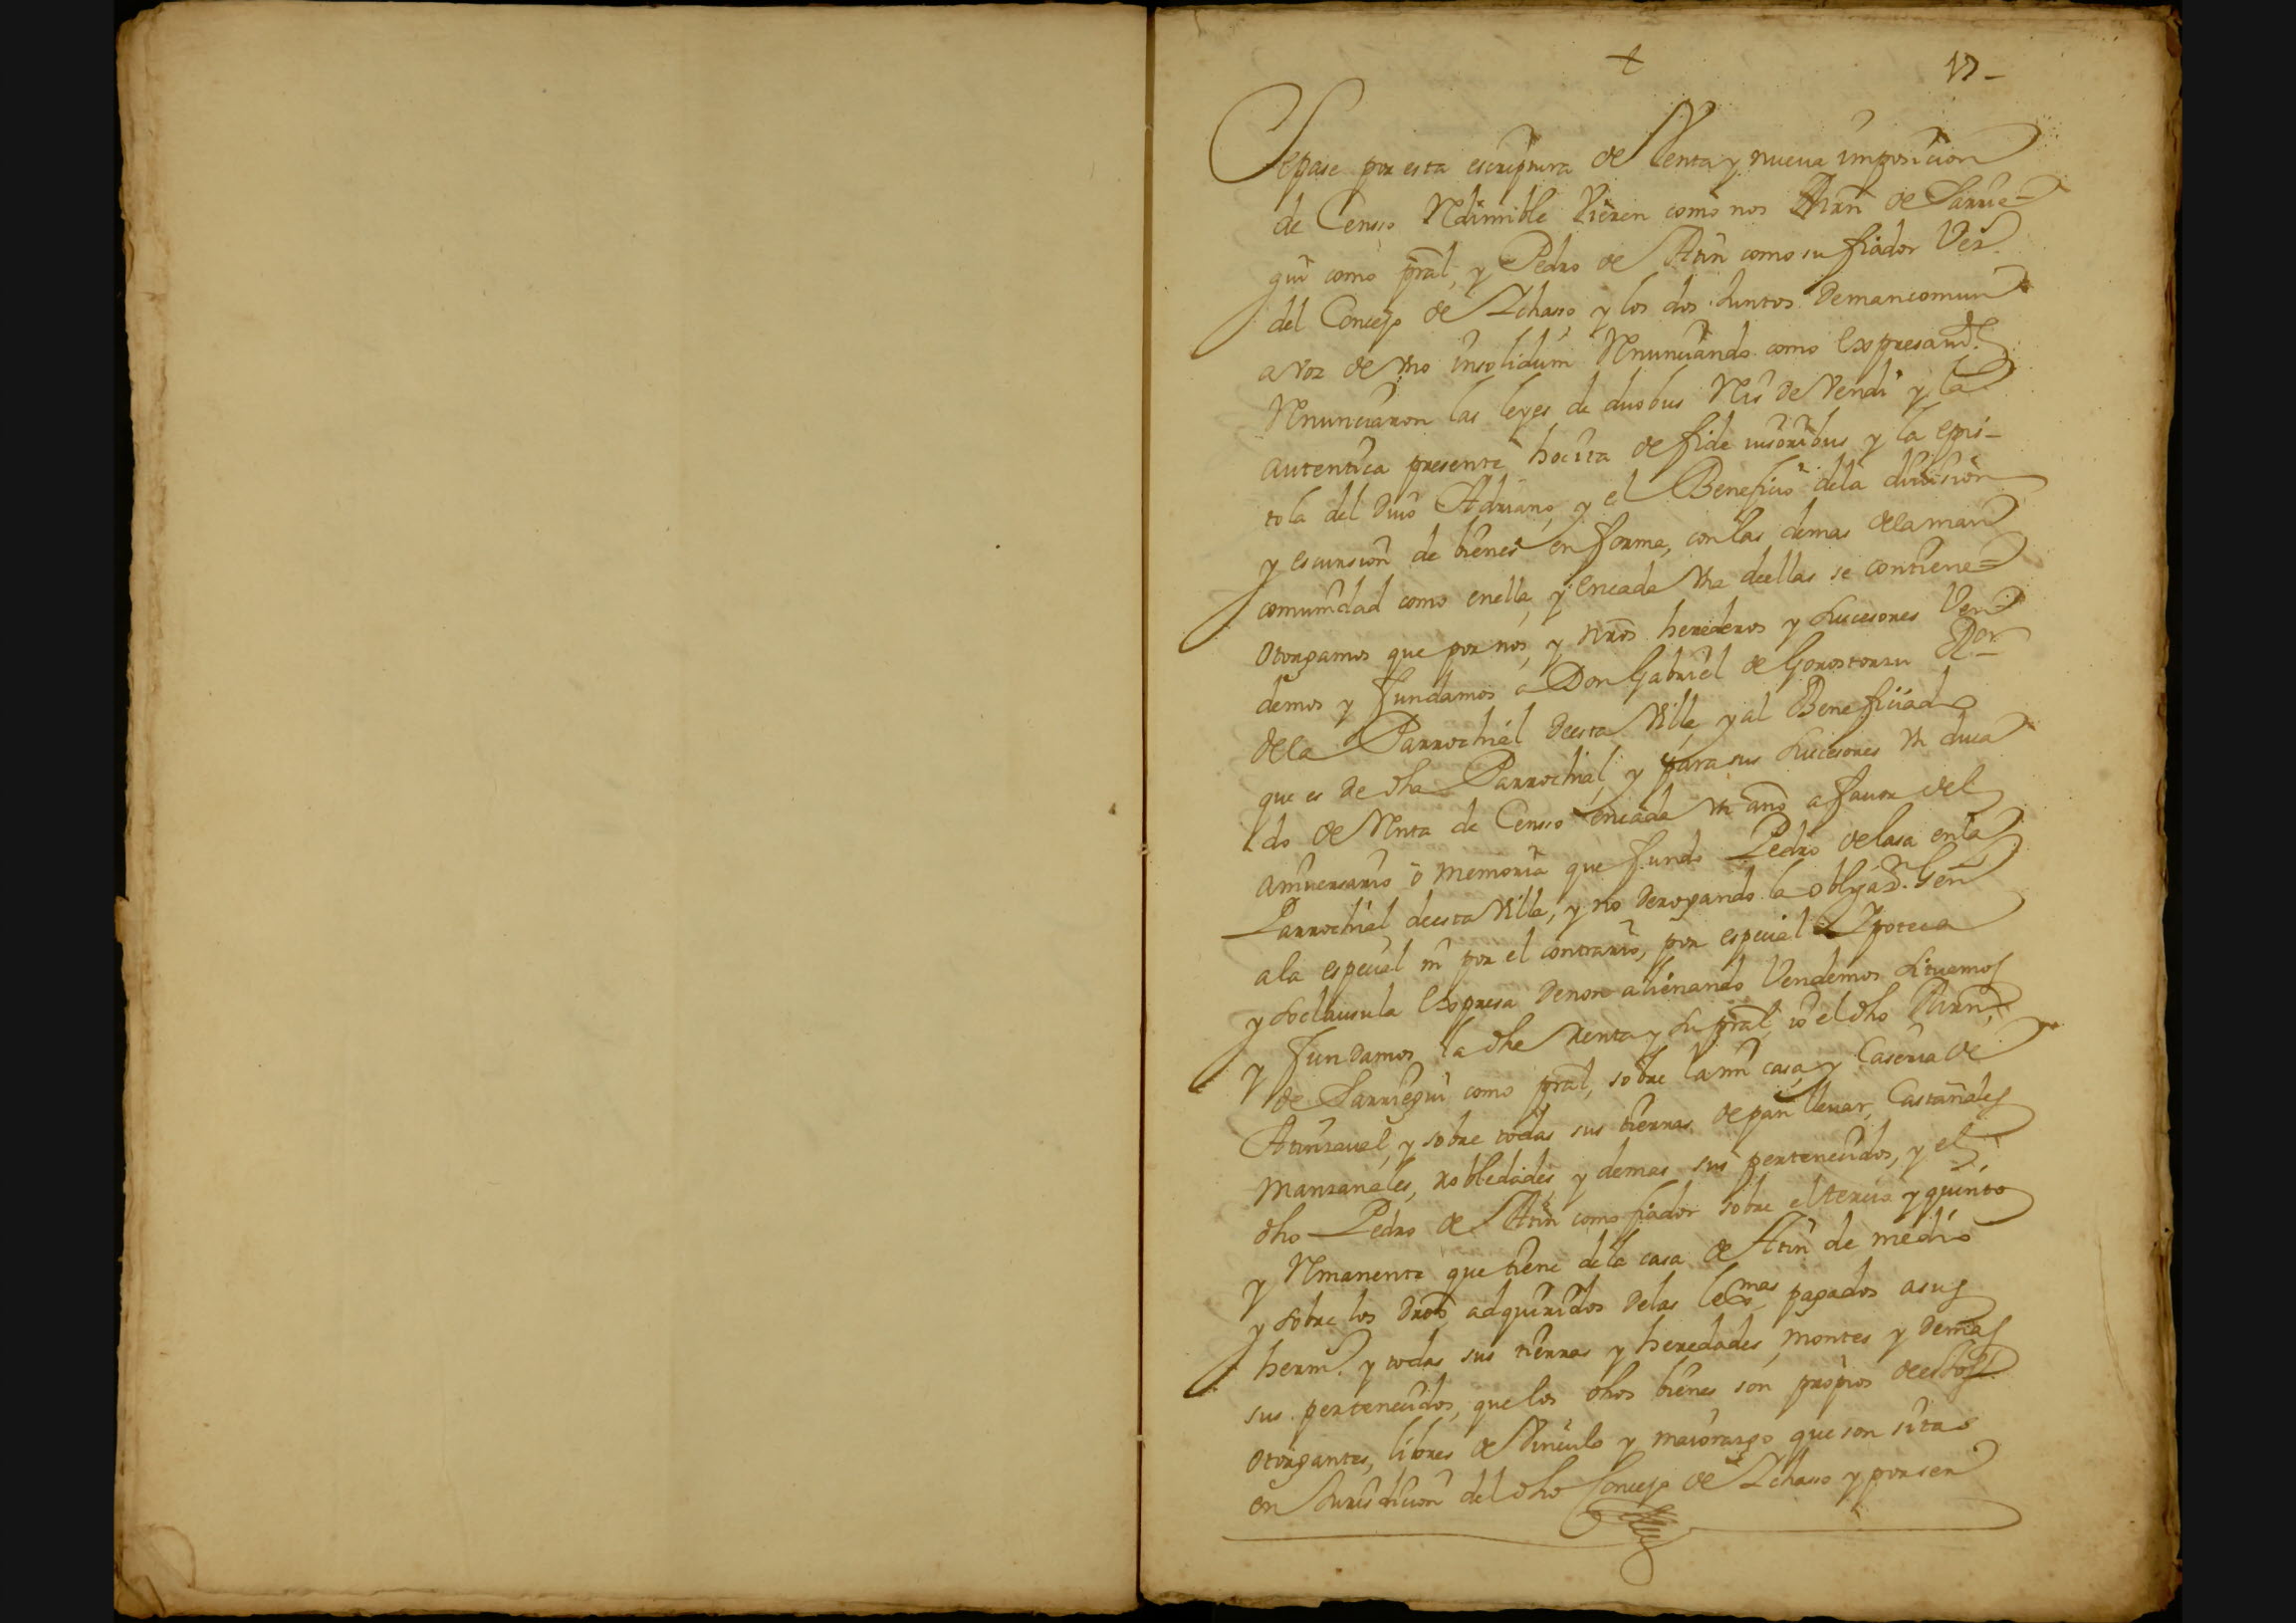 +
17 -
Sepase por esta escriptura de Venta y nueua imposicion
de Censso Redimible Vieren como nos Mrñ de Sarrie-
gui como pral, y Pedro de Atin como su fiador Vez.
del Concejo de Ichasso y los dos Juntos Demancomun
a voz de vno insolidum Renunciando como Expresamte.
Renunciaron las leyes de duobus Reis de Vendi y la
autentica presente hocita de fide iusoribus y la epis-
tola del Diuo Adriano, y el Beneficio dela diuission
y escursion de bienes en forma, con las demas dela man
comunidad como enella, y encada vna deellas se contiene=
otorgamos que por nos, y nros herederos y Sucesores Ven
demos y fundamos a Don Gabriel de Gorostorzu Ror
dela Parrochial deesta Villa, y al Beneficiado
que es de dha Parrochial, y para sus Sucesores vn duca
do de Renta de Censso encada vn año a fauor del
aniuersario o memoria que fundo Pedro de lasa enla
Parrochial deesta Villa, y no Derogando la obligaon. Gen
ala especial ni por el contrario, por especial Ypoteca
y So clausula Expresa de non alienando Vendemos Situamos
y fundamos la dha Renta y Su pral, io el dho Mrñ,
de Sarriegui como pral, sobre la mi casa y Caseria de
Atinzaual, y sobre todas sus tierras de pan lleuar, Castañales
Manzanales, robledades, y demas sus pertenecidos, y el
dho Pedro de Atin como fiador sobre el tercio y quinto
y Remanente que tiene dela casa de Atin de medio
y Sobre los Dros adquiridos Delas legmas pagados a sus
herm. y todas sus tierras y heredades, montes y Demas
sus pertenecidos, que los dhos bienes son propios deestos
otorgantes, libres de Vinculo y maiorazgo que son sitas
en Jurisdicion del dho Concejo de Ichasso y por ser